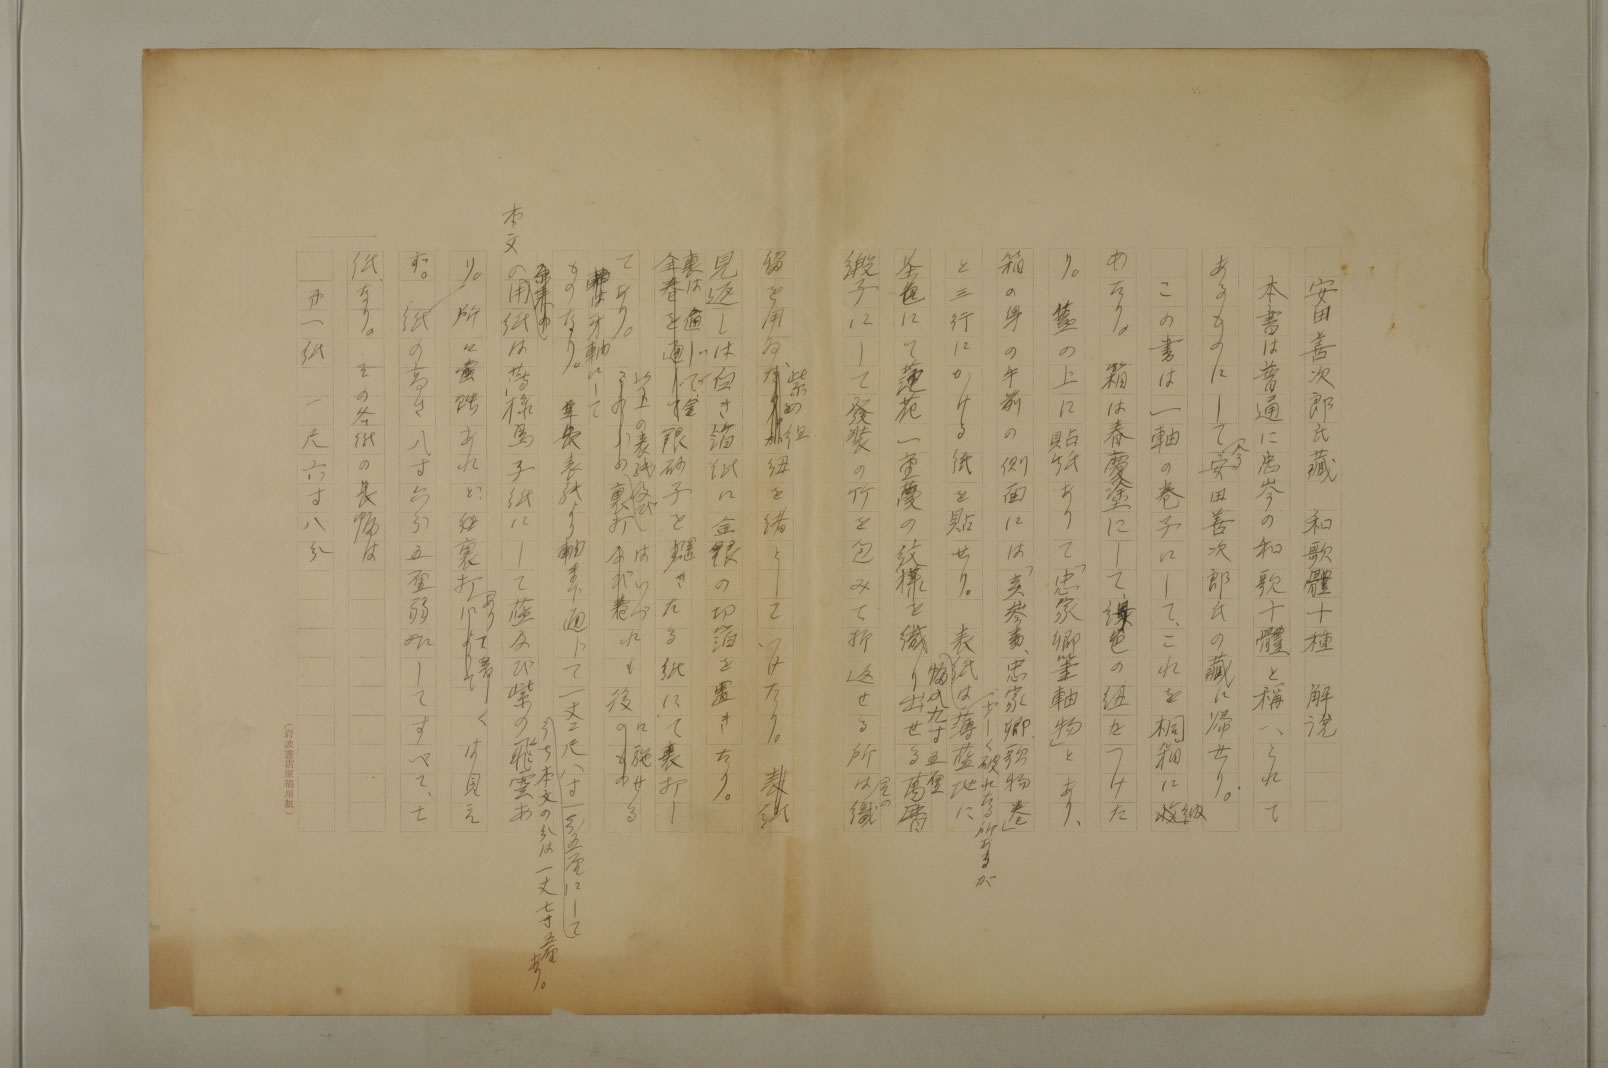 安田善次郎氏藏 和歌體十種 解説
本書は普通に忠岑の和歌十體と稱へられて
あるものにして今安田善次郎氏の藏に帰せり。
この書は一軸の巻子にして、これを桐箱に收納
めたり。箱は春慶塗にして、緑色の紐をつけた
り。蓋の上に貼紙ありて「忠家卿筆軸物」とあり、
箱の身の手前の側面には「忠家卿歌物一巻」
と三行にかける紙を貼せり。表紙は薄藍地に
少しく破れたる所あるが
幅九寸五厘
茶色にて蓮花一重蔓の紋様を織り出せる
緞子にして發装の竹を包みて折返せる所は織
留を用ゐ紫の組紐を緒としてつけたり。
見返しは白き箔紙に金銀の切箔を置きたり。
裏は通じて金
全巻を通じて銀砂子を撒きたる紙にて裏打し
てあり。以上の表紙はいづれも後に施せる
ものなり。表紙より軸まで通じて一丈二尺八寸一分五厘にして
軸は牙軸にして
うち本文の分は一丈七寸五厘あり。
本文の用紙は薄様鳥子紙にして藍及び紫の飛雲あ
り。所々蟲蝕あれど、裏打ありて著しくは見え
ず。紙の高さ八寸六分五厘弱にしてすべて、七
紙なり。その各紙の長幅は
第一紙 一尺六寸八分
(岩波書店原稿用紙)